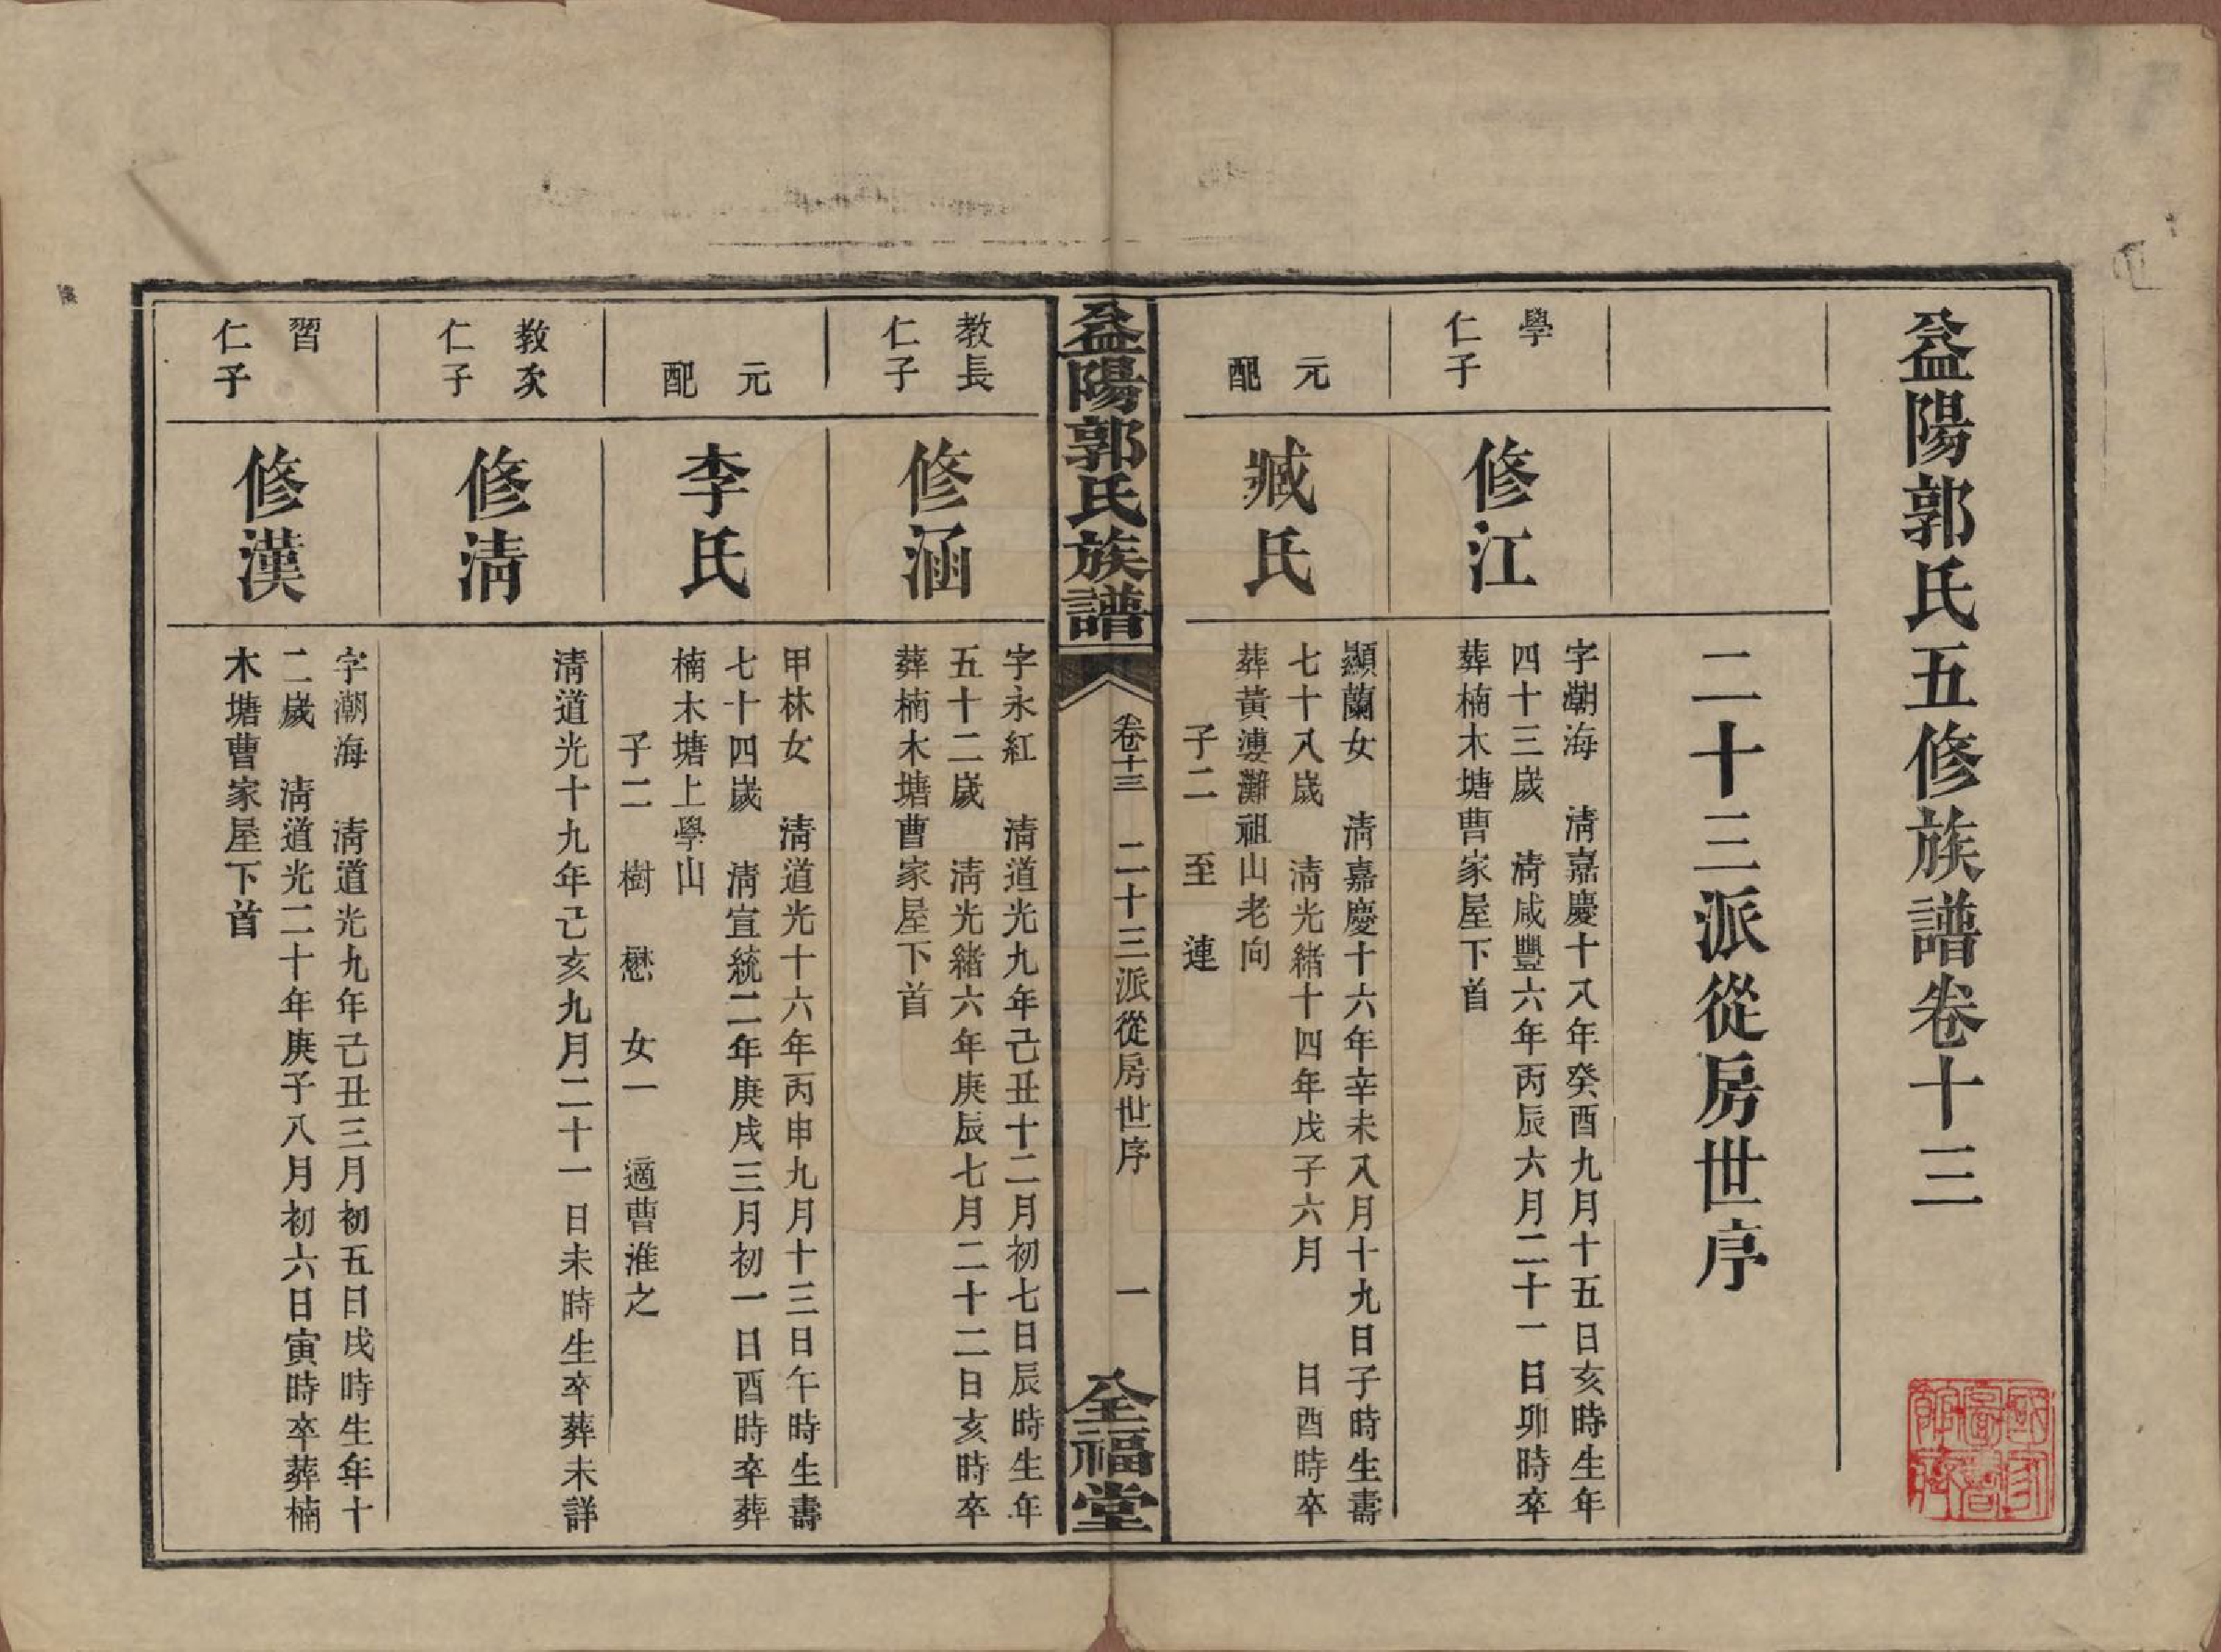 益陽郭氏五修族譜卷十三
二十三派從房世序
學仁子
修江
字潮海　清嘉慶十八年癸酉九月十五日亥時生年
四十三歲　清咸豐六年丙辰六月二十一日卯時卒
葬楠木塘曹家屋下首
元配
臧氏
顯蘭女　清嘉慶十六年辛未八月十九日子時生壽
七十八歲　清光緒十四年戊子六月　日酉時卒
葬黃漊灘祖山老向
子二　至　連
益陽郭氏族譜
卷十三　二十三派從房世序　一
全福堂
教長仁子
修涵
字永紅　清道光九年己丑十二月初七日辰時生年
五十二歲　清光緒六年庚辰七月二十二日亥時卒
葬楠木塘曹家屋下首
元配
李氏
甲林女　清道光十六年丙申九月十三日午時生壽
七十四歲　清宣統二年庚戌三月初一日酉時卒葬
楠木塘上學山
子二　樹　懋　女一　適曹淮之
教次仁子
修清
清道光十九年己亥九月二十一日未時生卒葬未詳
習仁子
修漢
字潮海　清道光九年己丑三月初五日戌時生年十
二歲　清道光二十年庚子八月初六日寅時卒葬楠
木塘曹家屋下首
國家圖書館藏